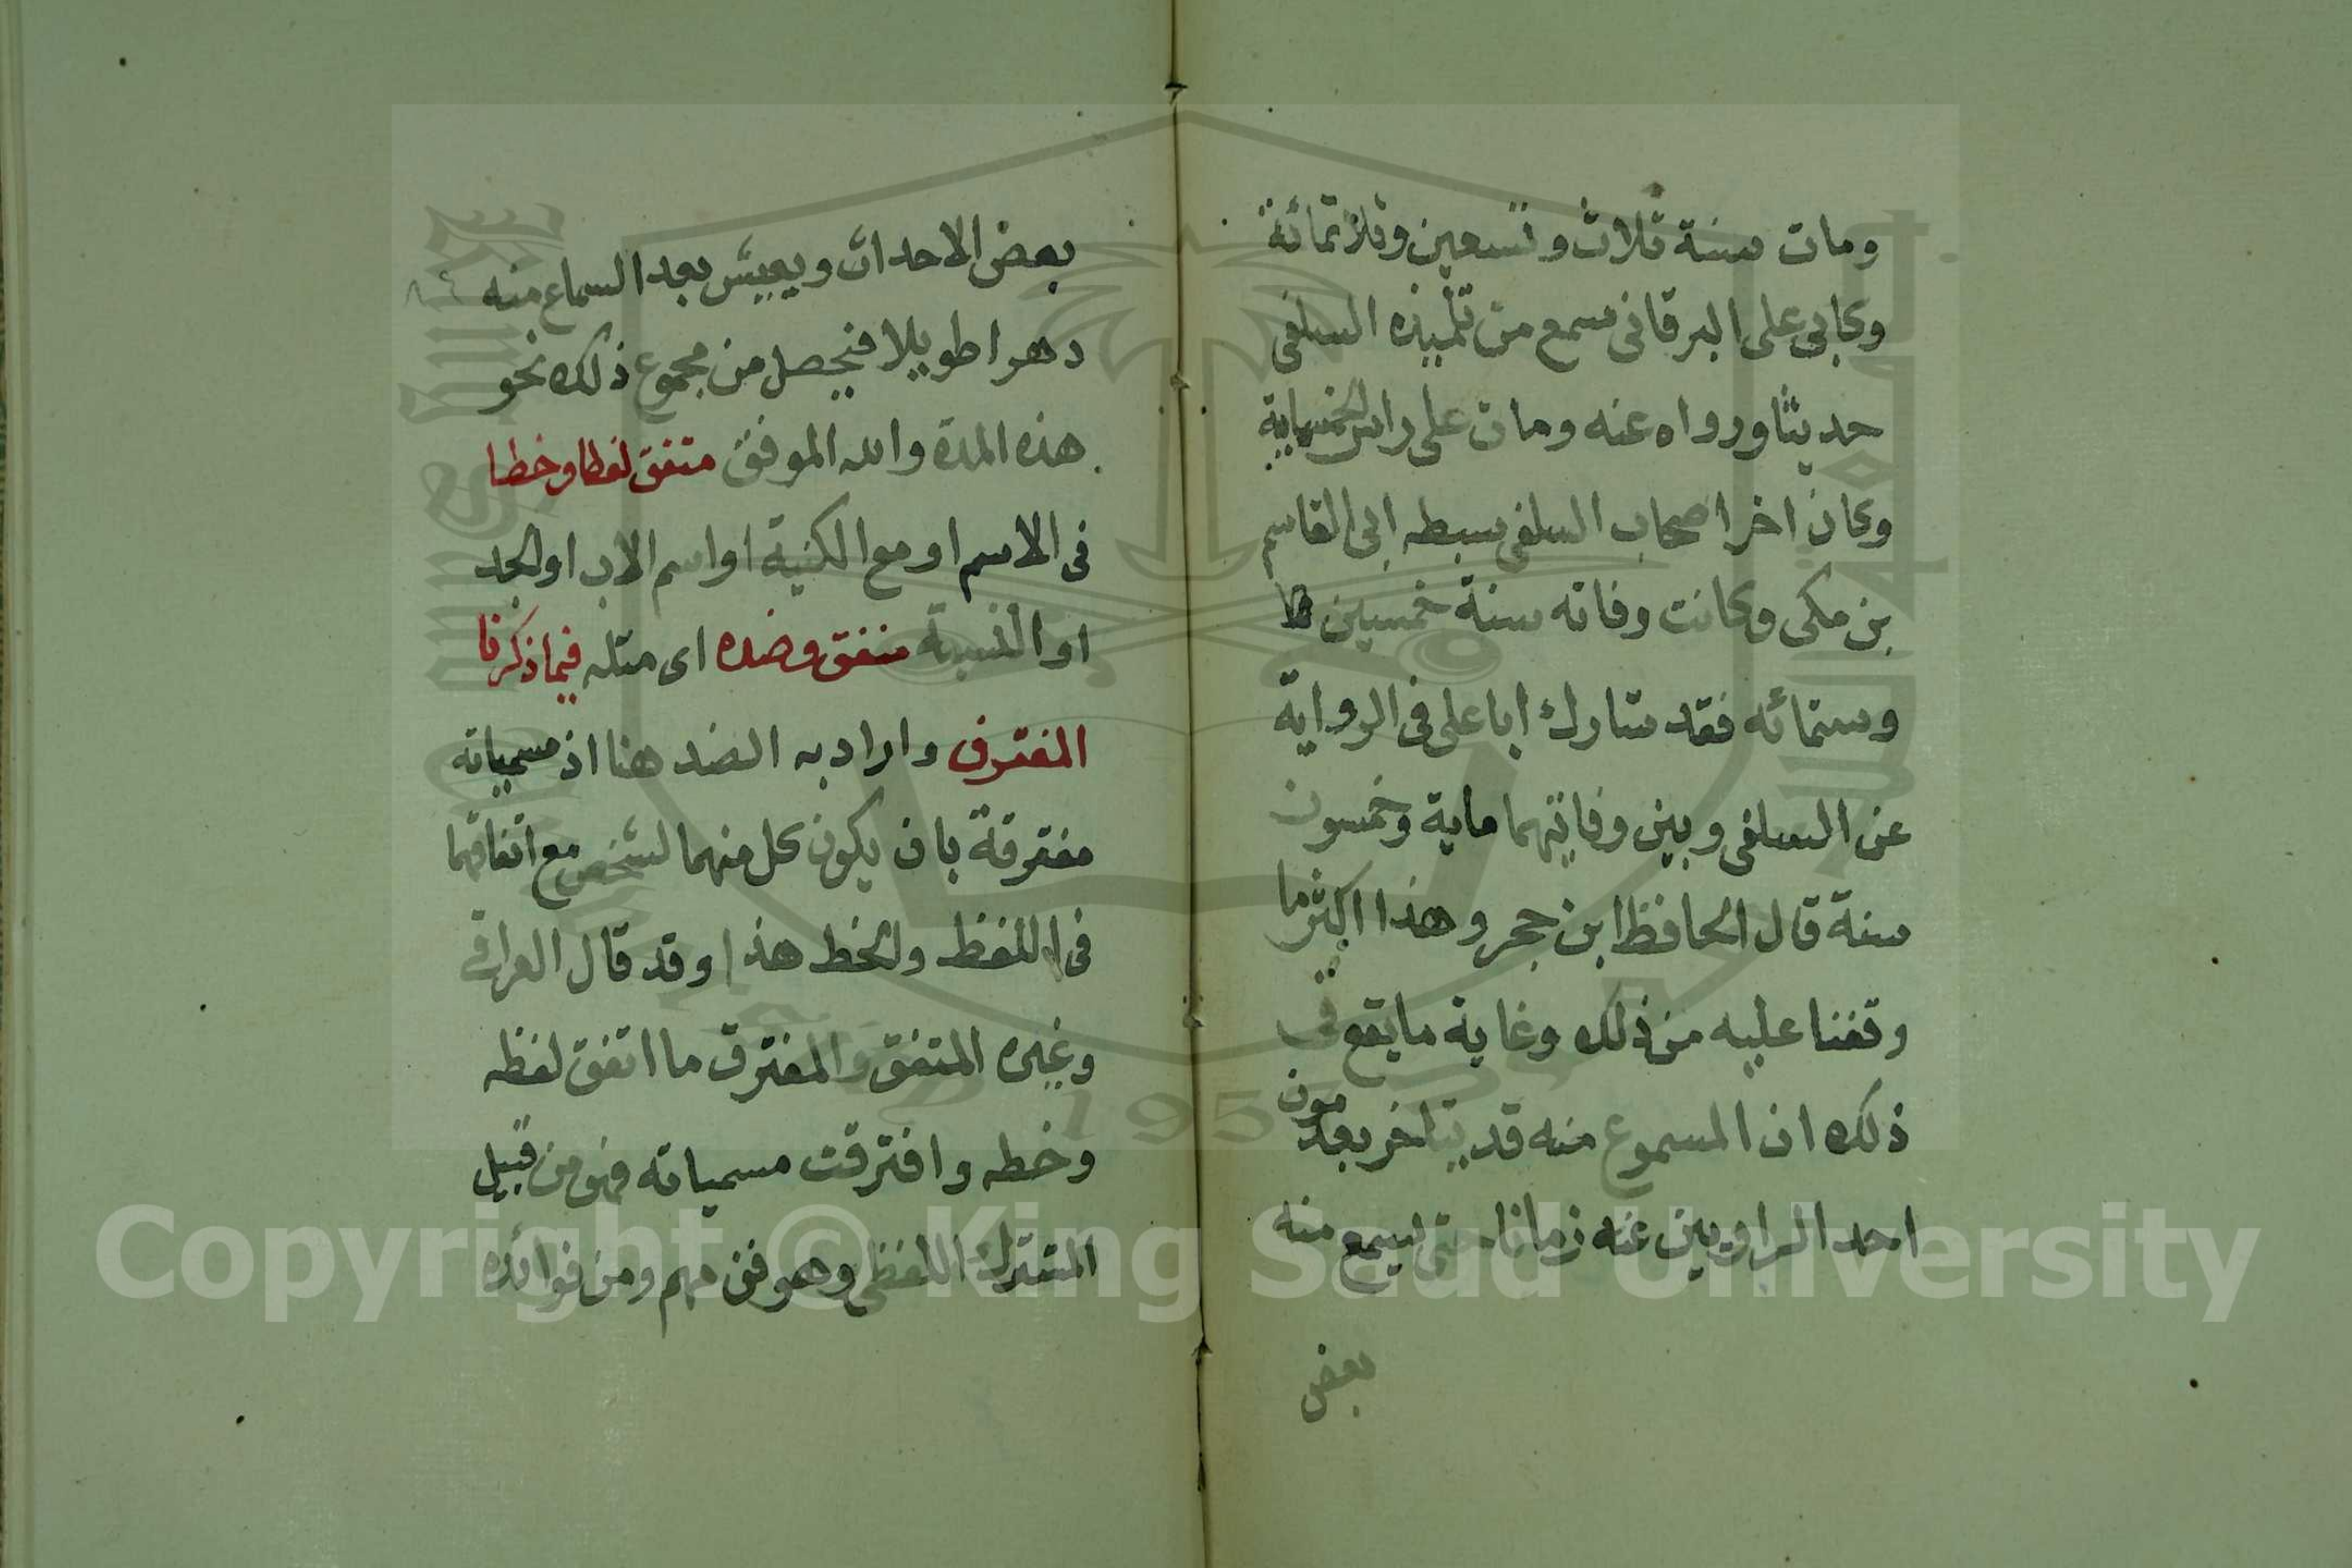 ومات سنة ثلاث وتسعين وثلاثمائة
وكابى على البرقانى سمع من تلميذه السلفى
حديثا ورواه عنه ومات على راس الخمسماية
وكان اخر اصحاب السلفى سبطه ابى القاسم
بن مكى وكانت وفاته سنة خمسين
وستمائه فقد شارك ابا على فى الرواية
عن السلفى وبين وفاتيهما ماية وخمسون
سنة قال الحافظ ابن حجر وهذا اكثر ما
وقفنا عليه من ذلك وغاية مايقع فى
ذلك ان المسموع منه قد يتاخر بعد موت
احد الراويين عنه زمانا حتى يسمع منه
بعض
بعض الاحداث ويعيش بعد السماع منه
دهرا طويلا فيحصل من مجموع ذلك نحو
هذه المدة والله الموفق متفق لفظا وخطا
فى الاسم او مع الكنية او اسم الاب او الجد
او النسبة متفق وضده اى مثله فيما ذكرنا
المفترق واراد به الضد هنا اذ مسمياته
مفترقة بان يكون كل منهما لشخص مع اتفاقهما
فى اللفظ والخط هذا وقد قال العراقى
وغيره المتفق والمفترق ما اتفق لفظه
وخطه وافترقت مسمياته فهو من قبيل
المشترك اللفظى وهو فن مهم ومن فوائده
Copyright © King Saud University
1957